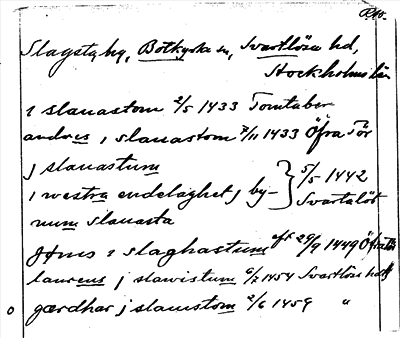 Slagsta by, Botkyrka sn, Svartlösa hd,
Stockholms län
i slauastom 2/5 1433 Tomtaber
andres i slauastom 7/11 1433 Öfra Tör
j slauastum
i westra endelaghet j by- } 5/5 1442
num slauasta Svartalöt
Jöns i slaghastum eft 29/9 1449 Öfra Tör
laurens j slawistum 6/7 1454 Svartlösa hd
gærdhar j slauustom 2/6 1459 "